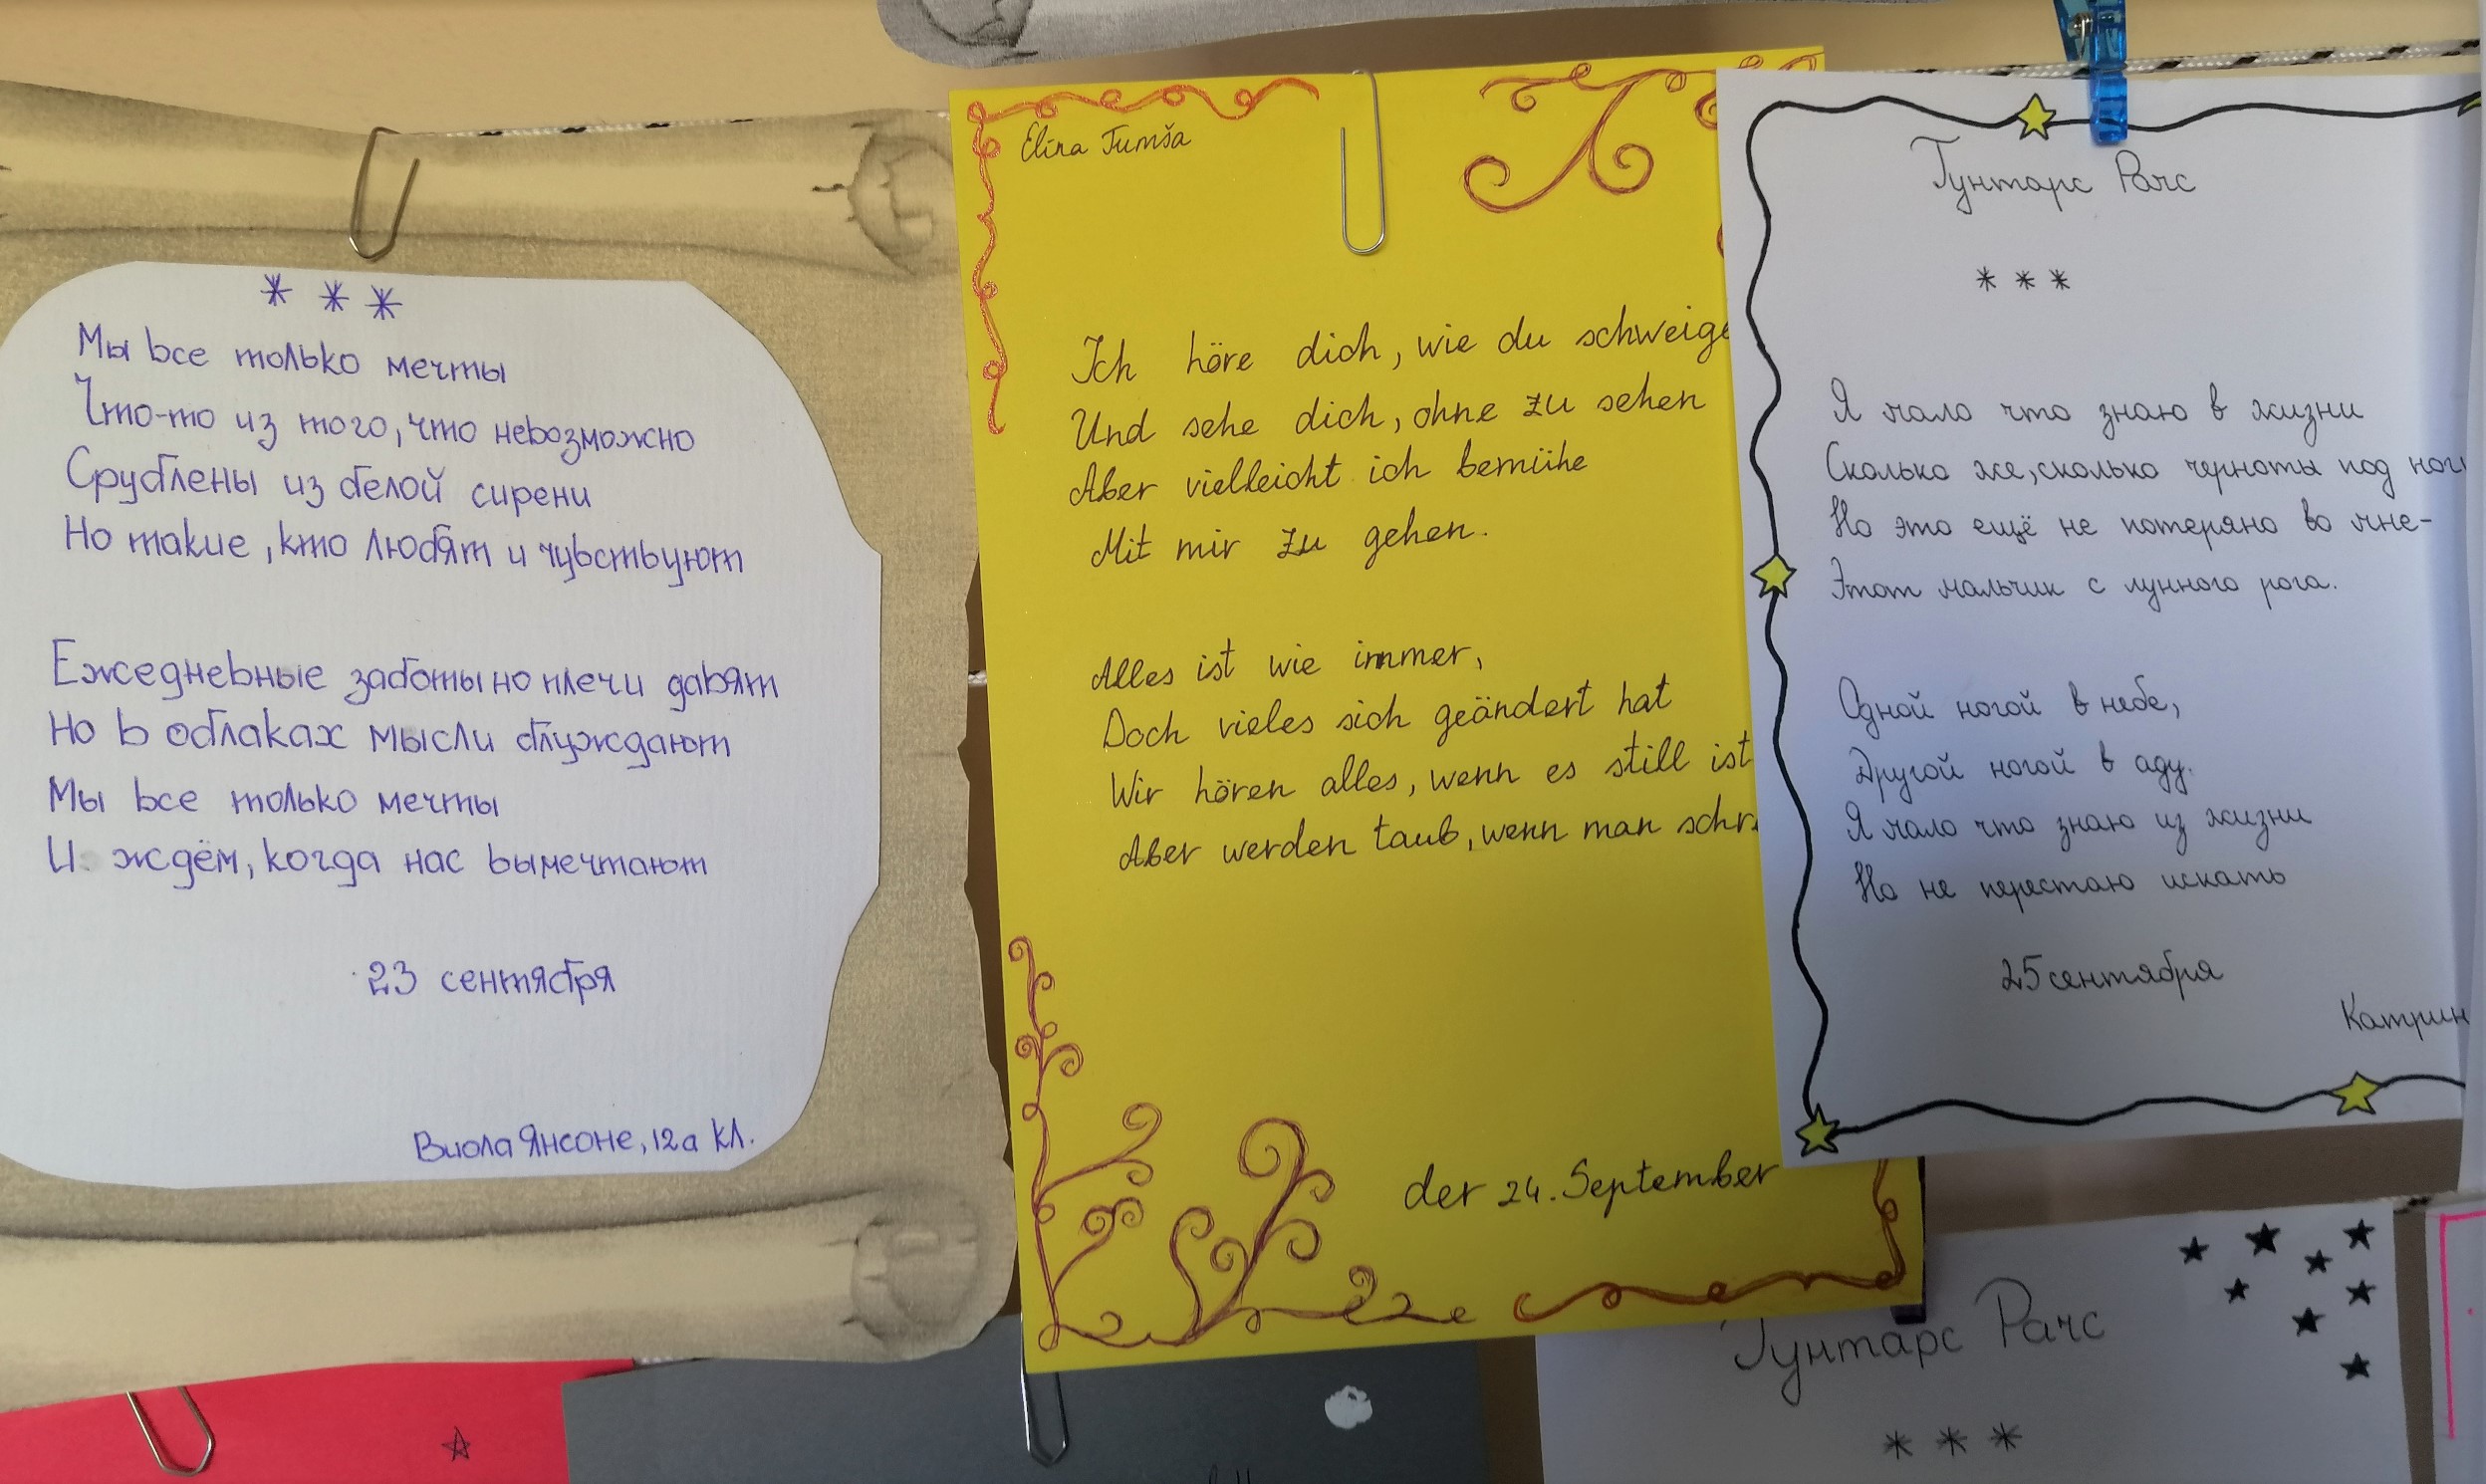 * * *
Мы все только мечты
Что-то из того, что невозможно
Срублены из белой сирени
Но такие, кто любят и чувствуют
Ежедневные заботы но плечи давят
Но в облаках мысли блуждают
Мы все только мечты
И ждём, когда нас вымечтают
23 сентября
Виола Янсоне, 12а кл.
Elina Tumša
Ich höre dich, wie du
Und sehe dich, ohne zu sehen
Aber vielleicht ich bemühe
Mit mir zu gehen.
Alles ist wie immer,
Doch vieles sich geändert hat
Wir hören alles, wenn es still ist
Aber werden taub, wenn man
der 24. September
Гунтарс Рачс
* * *
Я мало что знаю в жизни
Сколько же, сколько черноты под
Но это ещё не потеряно во мне-
Этот мальчик с лунного рога.
Одной ногой в небе,
Другой ногой в аду.
Я мало что знаю из жизни
Но не перестаю искать
25 сентября
Гунтарс Рачс
* * *